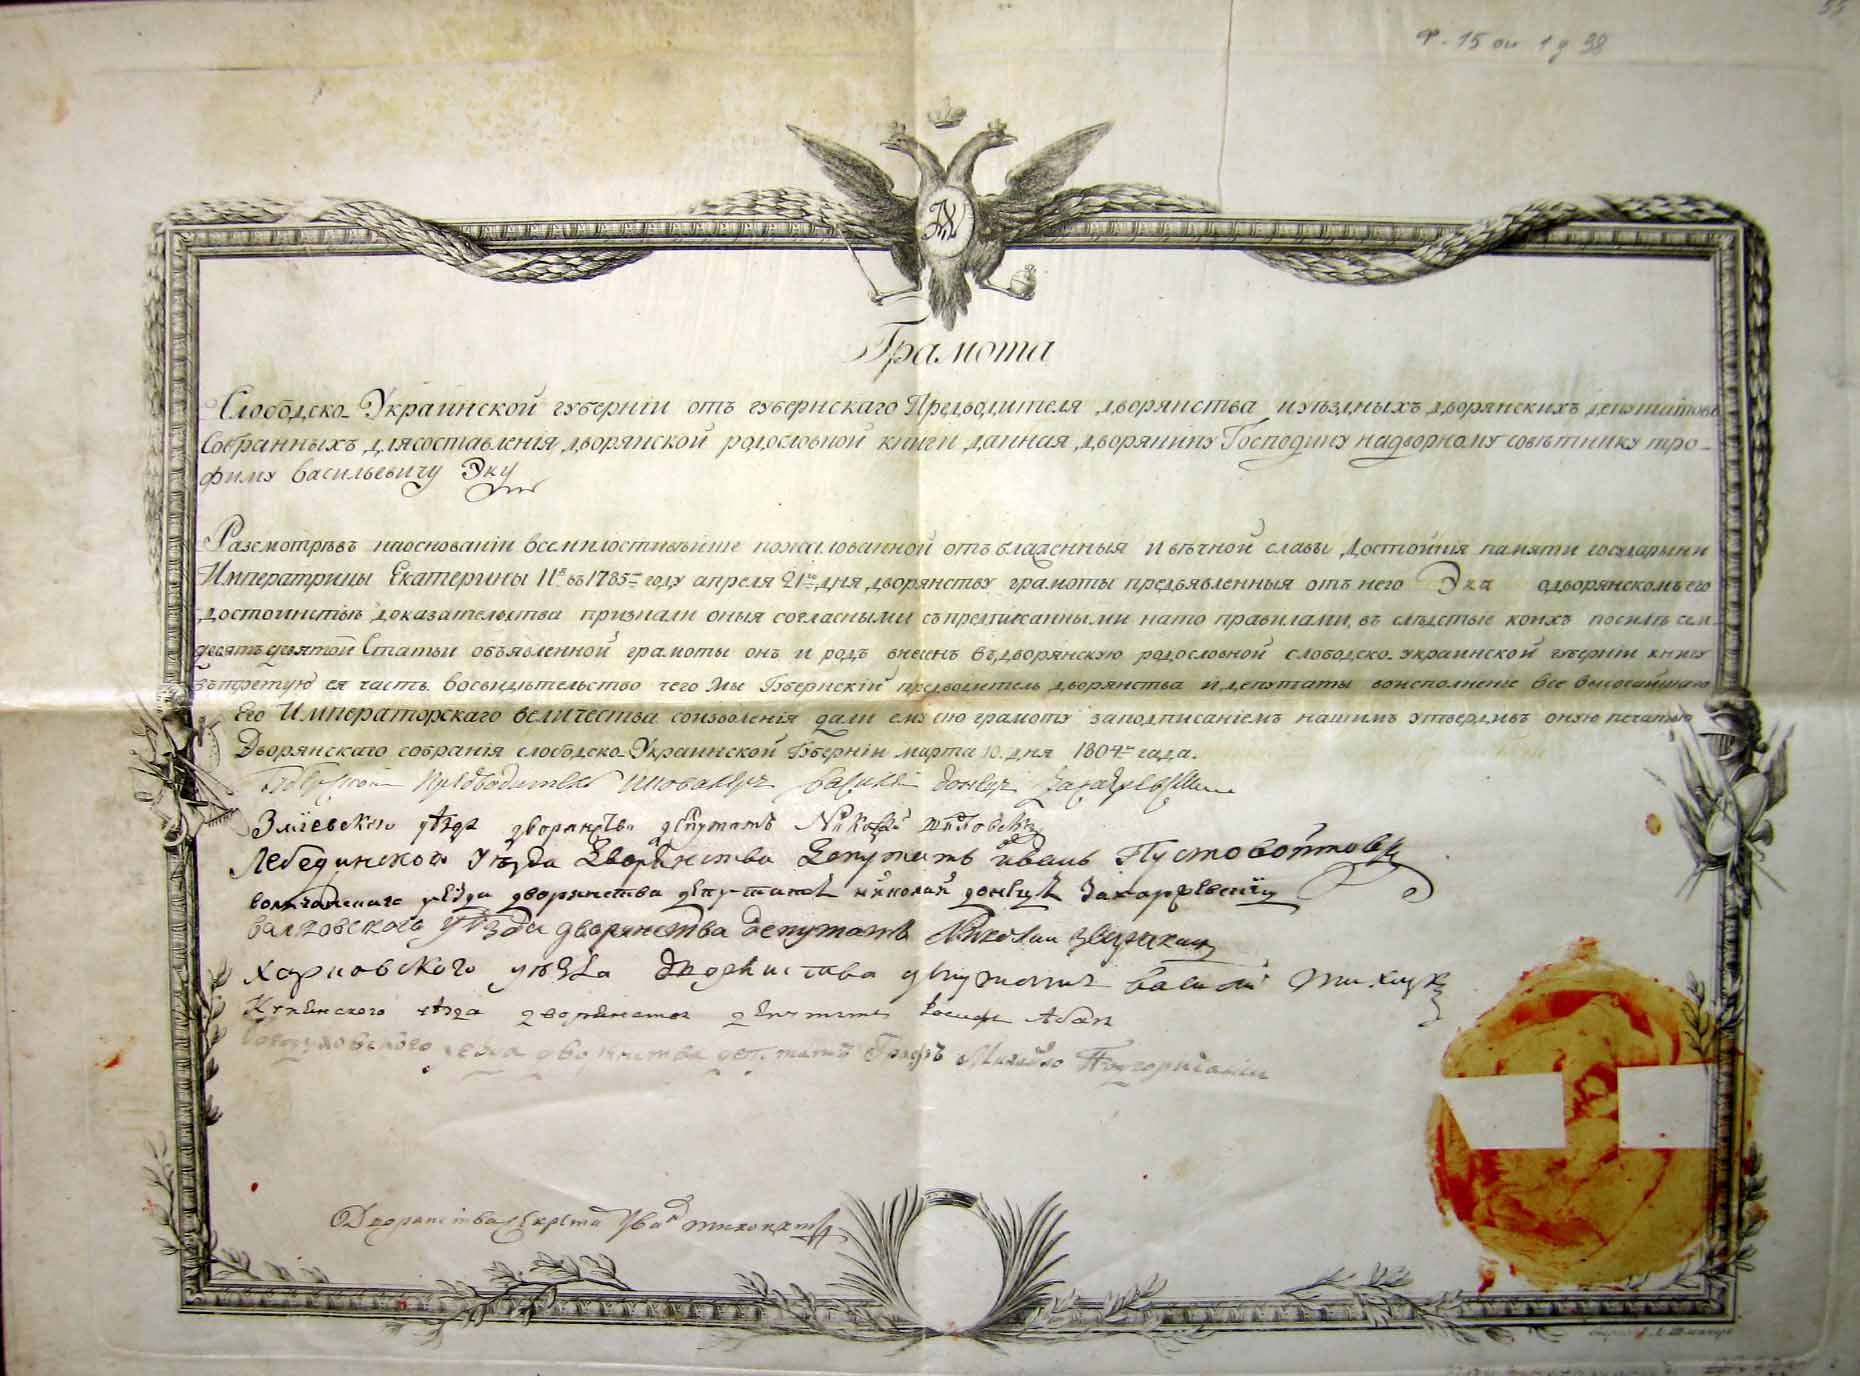 ф. 15 оп 1 д 38
Грамота
Слободско-Украинской губерніи отъ губернскаго Предводителя дворянства и уѣздныхъ дворянскихъ депутатовъ
Собранныхъ для составленія дворянской родословной книги данная дворянину Господину надворному совѣтнику тро-
фиму васильевичу Эку
Разсмотрѣвъ на основаніи всемилостивѣйше пожалованной отъ блаженныя и вѣчной славы достойныя памяти государыни
Императрицы Екатерины II въ 1785 году апреля 21 дня дворянству грамоты предъявленныя отъ него Эка о дворянскомъ его
достоинствѣ доказательства признали оныя согласными съ предписанными на то правилами, въ слѣдствіе коихъ по силѣ сем-
десятъ девятой Статьи объявленной грамоты онъ и родъ внесенъ въ дворянскую родословной слободско-украинской губерніи книгу
въ третую ея часть. Восвидѣтельство чего Мы Губернскій предводитель дворянства и депутаты воисполненіе все высочайшаго
Его Императорскаго величества соизволенія дали ему сію грамоту за подписаніемъ нашимъ утвердивъ оную печатью
Дворянскаго собранія слободско-Украинской Губерніи марта 10. дня 1804 года.
Губернской Предводитель Василей Донецъ Захаржевский
Зміевского уѣзда дворянства депутатъ Николай шидловской
Лебединского Уѣзда Дворянства Депутатъ иванъ Пустовойтовъ
волчанскаго уезда дворянства депутатъ николай донецъ Захаржевскій
валковского уѣзда дворянства депутатъ Николай
харковского уѣзда дворянства депутатъ василій
Купенского уѣзда дворянства депутатъ
Богодуховского уезда дворянства депутатъ Графъ Михайло Подгоричаній
Дворянства Секретарь Иванъ